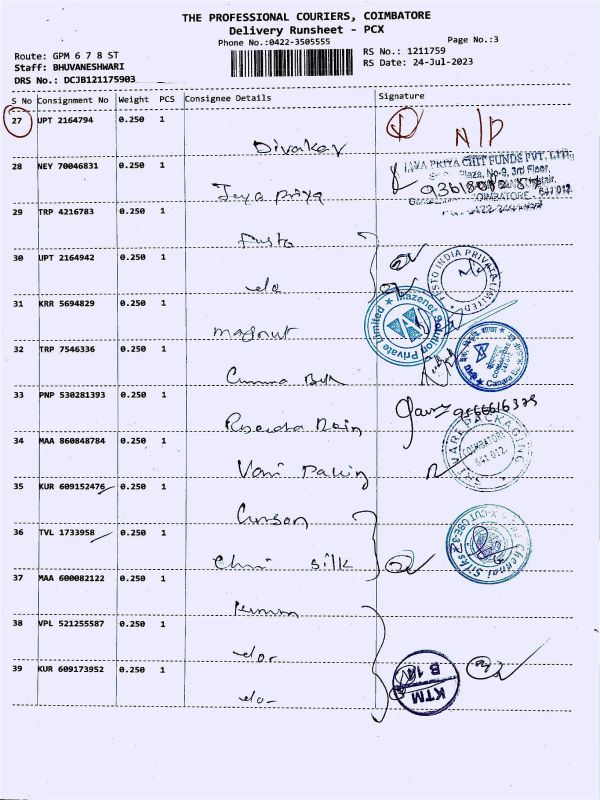 THE PROFESSIONAL COURIERS, COIMBATORE
Delivery Runsheet - PCX
Phone No.:0422-3505555
Page No.:3
Route: GPM 6 7 8 ST
RS No.: 1211759
Staff: BHUVANESHWARI
RS Date: 24-Jul-2023
DRS No.: DCJB121175903
S No Consignment No Weight PCS Consignee Details Signature
27 UPT 2164794 0.250 1
N/D
Divakar
28 NEY 70046831 0.250 1
JAYA PRIYA CHIT FUNDS PVT. LTD.
Plaza, No-9, 3rd Floor,
Jaya Priya
COIMBATORE - 641 012
29 TRP 4216783 0.250 1
Fusto
30 UPT 2164942 0.250 1
FUSTO INDIA PRIVATE LIMITED
do
31 KRR 5694829 0.250 1
Mazenet Solution Private Limited
magnut
32 TRP 7546336 0.250 1
Canara Bank
33 PNP 530281393 0.250 1
9566616379
34 MAA 860848784 0.250 1
SRI VARI PACKAGING
COIMBATORE
641 012
Vani
35 KUR 609152476 0.250 1
36 TVL 1733958 0.250 1
Chennai Silks
X-CUT CBE-
Silk
37 MAA 600082122 0.250 1
38 VPL 521255587 0.250 1
do-
39 KUR 609173952 0.250 1
KTM
do-